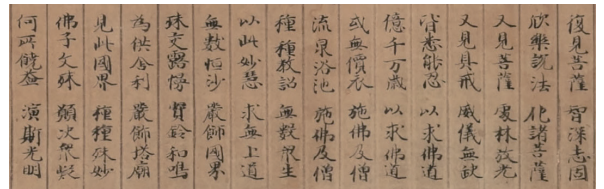 復見菩薩 智深志固
欣樂說法 化諸菩薩
又見菩薩 處林放光
又見具戒 威儀無缺
皆悉能忍 以求佛道
億千万歲 以求佛道
或無價衣 施佛及僧
流泉浴池 施佛及僧
種種教詔 無數眾生
以此妙慧 求無上道
無數恒沙 嚴飾國界
珠交露幔 寶鈴和鳴
為供舍利 嚴飾塔廟
見此國界 種種殊妙
佛子文殊 願決眾疑
何所饒益 演斯光明